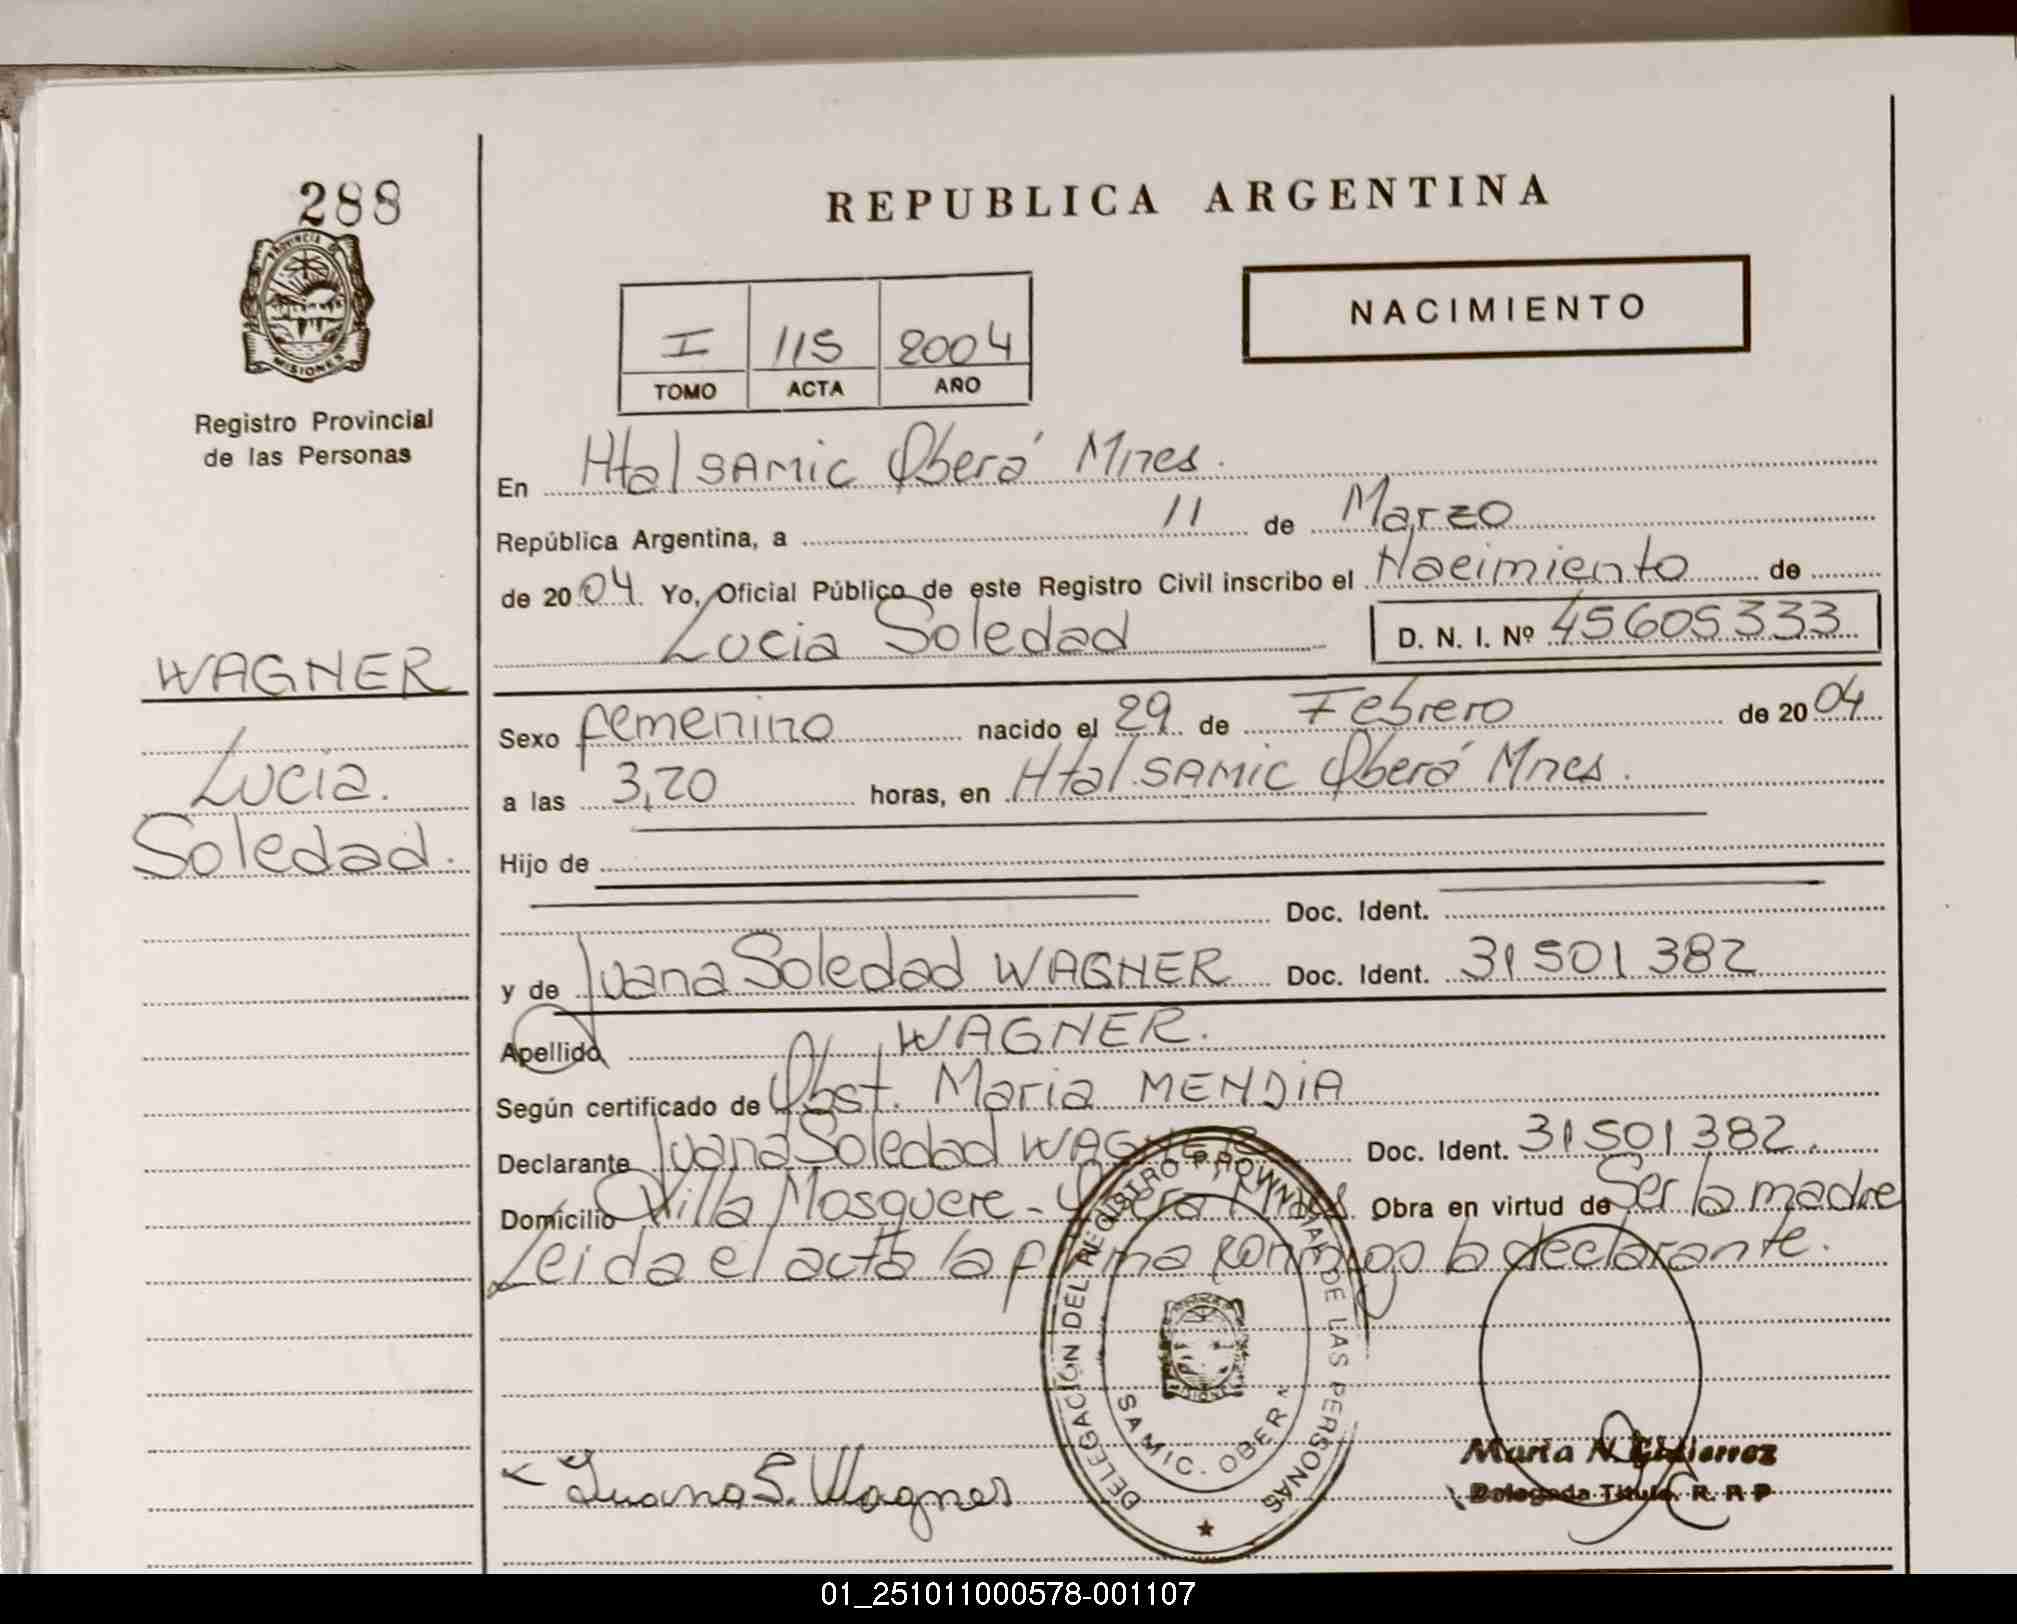 288
PROVINCIA DE
MISIONES
Registro Provincial
de las Personas
WAGNER
Lucia.
Soledad.
REPUBLICA ARGENTINA
NACIMIENTO
I 115 2004
TOMO ACTA AÑO
En Htal SAMIC Oberá Mnes.
República Argentina, a 11 de Marzo
de 2004. Yo, Oficial Público de este Registro Civil inscribo el Nacimiento de
Lucia Soledad D. N. I. Nº 45605333
Sexo femenino nacido el 29 de Febrero de 2004
a las 3,20 horas, en Htal. SAMIC Oberá Mnes.
Hijo de
Doc. Ident.
y de Juana Soledad WAGNER Doc. Ident. 31501382
Apellido WAGNER.
Según certificado de Obst. Maria MENDIA
Declarante Juana Soledad WAGNER Doc. Ident. 31501382.
Domicilio Villa Mosquere - Oberá Mnes Obra en virtud de Ser la madre
Leida el acta la firma conmigo la declarante.
DELEGACIÓN DEL REGISTRO PROVINCIAL DE LAS PERSONAS
SAMIC. OBERA
Juana S. Wagner
Maria N. Gutierrez
Delegada Titular R. R P
01_251011000578-001107